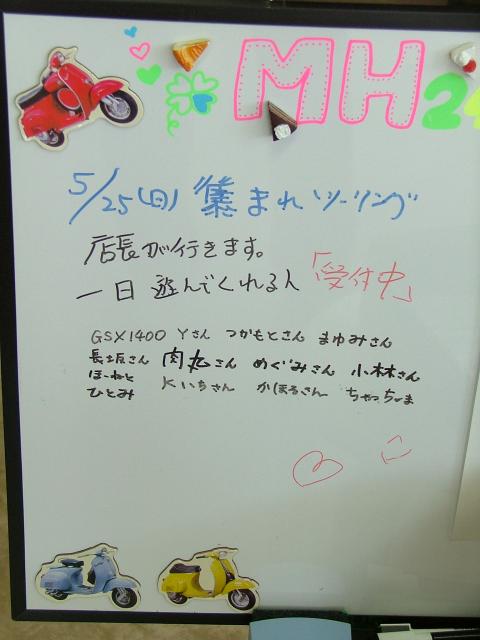 MH24
5/25(日) 集まれツーリング
店長が行きます。
一日 遊んでくれる人 「受付中」
GSX1400 Yさん つかもとさん まゆみさん
長坂さん 肉丸さん めぐみさん 小林さん
ほーねと
ひとみ Kいちさん かほるさん ちゃっちゃま